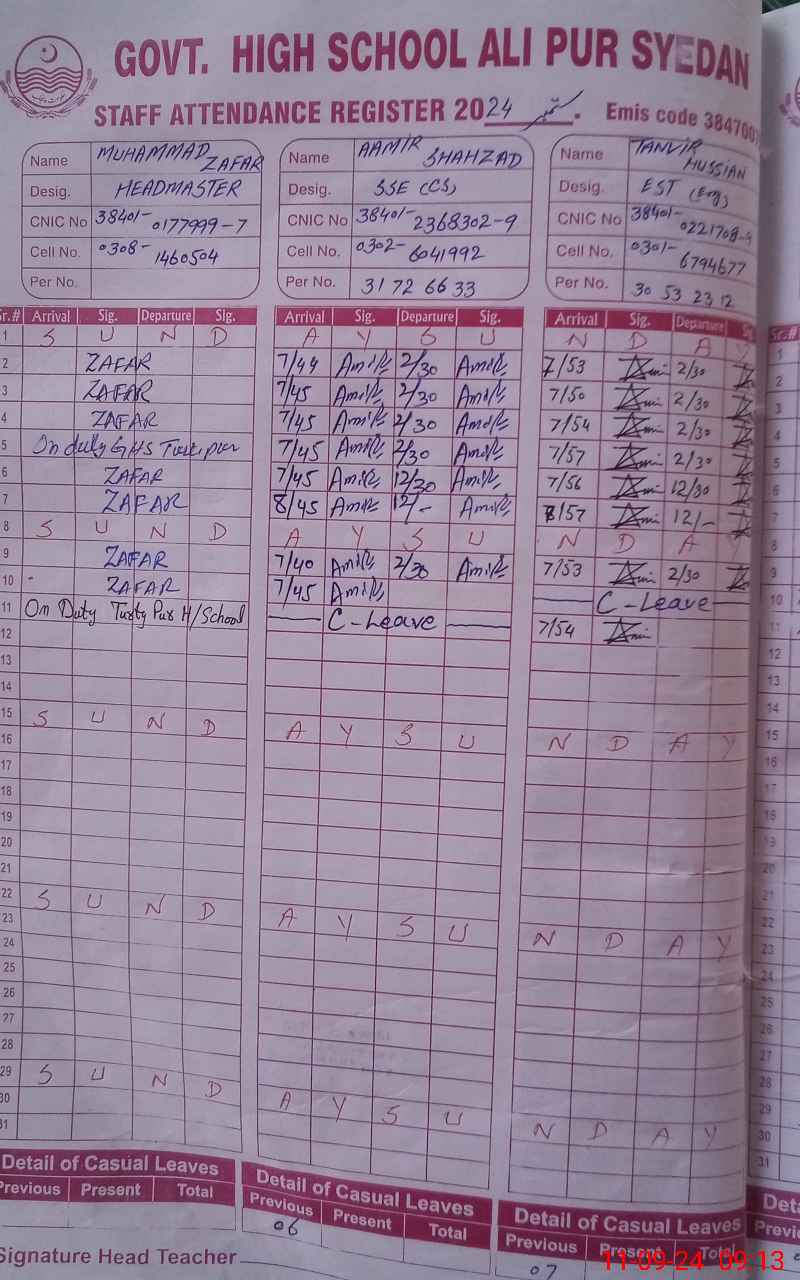 GOVT. HIGH SCHOOL ALI PUR SYEDAN
STAFF ATTENDANCE REGISTER 2024 ستمبر . Emis code 3847001
Name MUHAMMAD ZAFAR Name AAMIR SHAHZAD Name TANVIR HUSSIAN
Desig. HEADMASTER Desig. SSE (CS) Desig. EST (Eng)
CNIC No 38401-0177999-7 CNIC No 38401-2368302-9 CNIC No 38401-0221708-9
Cell No. 0308-1460504 Cell No. 0302-6041992 Cell No. 0301-6794677
Per No. Per No. 31 72 66 33 Per No. 30 53 23 12
Sr.# Arrival Sig. Departure Sig. Arrival Sig. Departure Sig. Arrival Sig. Departure Sig.
1 S U N D A Y S U N D A Y
2 ZAFAR 7/44 Amir 2/30 Amir 7/53 2/30
3 ZAFAR 7/45 Amir 2/30 Amir 7/50 2/30
4 ZAFAR 7/45 Amir 2/30 Amir 7/54 2/30
5 On duty GHS 7/45 Amir 2/30 Amir 7/57 2/30
6 ZAFAR 7/45 Amir 12/30 Amir 7/56 12/30
7 ZAFAR 8/45 Amir 12/- Amir 8/57 12/-
8 S U N D A Y S U N D A Y
9 ZAFAR 7/40 Amir 2/30 Amir 7/53 2/30
10 ZAFAR 7/45 Amir C-Leave
11 On Duty Pur H/School C-Leave 7/54
12
13
14
15 S U N D A Y S U N D A Y
16
17
18
19
20
21
22 S U N D A Y S U N D A Y
23
24
25
26
27
28
29 S U N D A Y S U N D A Y
30
31
Detail of Casual Leaves Detail of Casual Leaves Detail of Casual Leaves
Previous Present Total Previous Present Total Previous Present Total
06 07
Signature Head Teacher
11-09-24 09:13